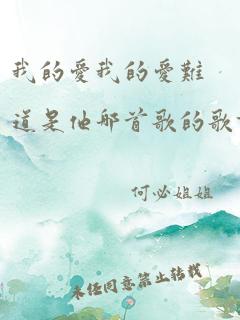 我的愛我的愛難
道是他那首歌的歌
何必姐姐
未经同意禁止转载